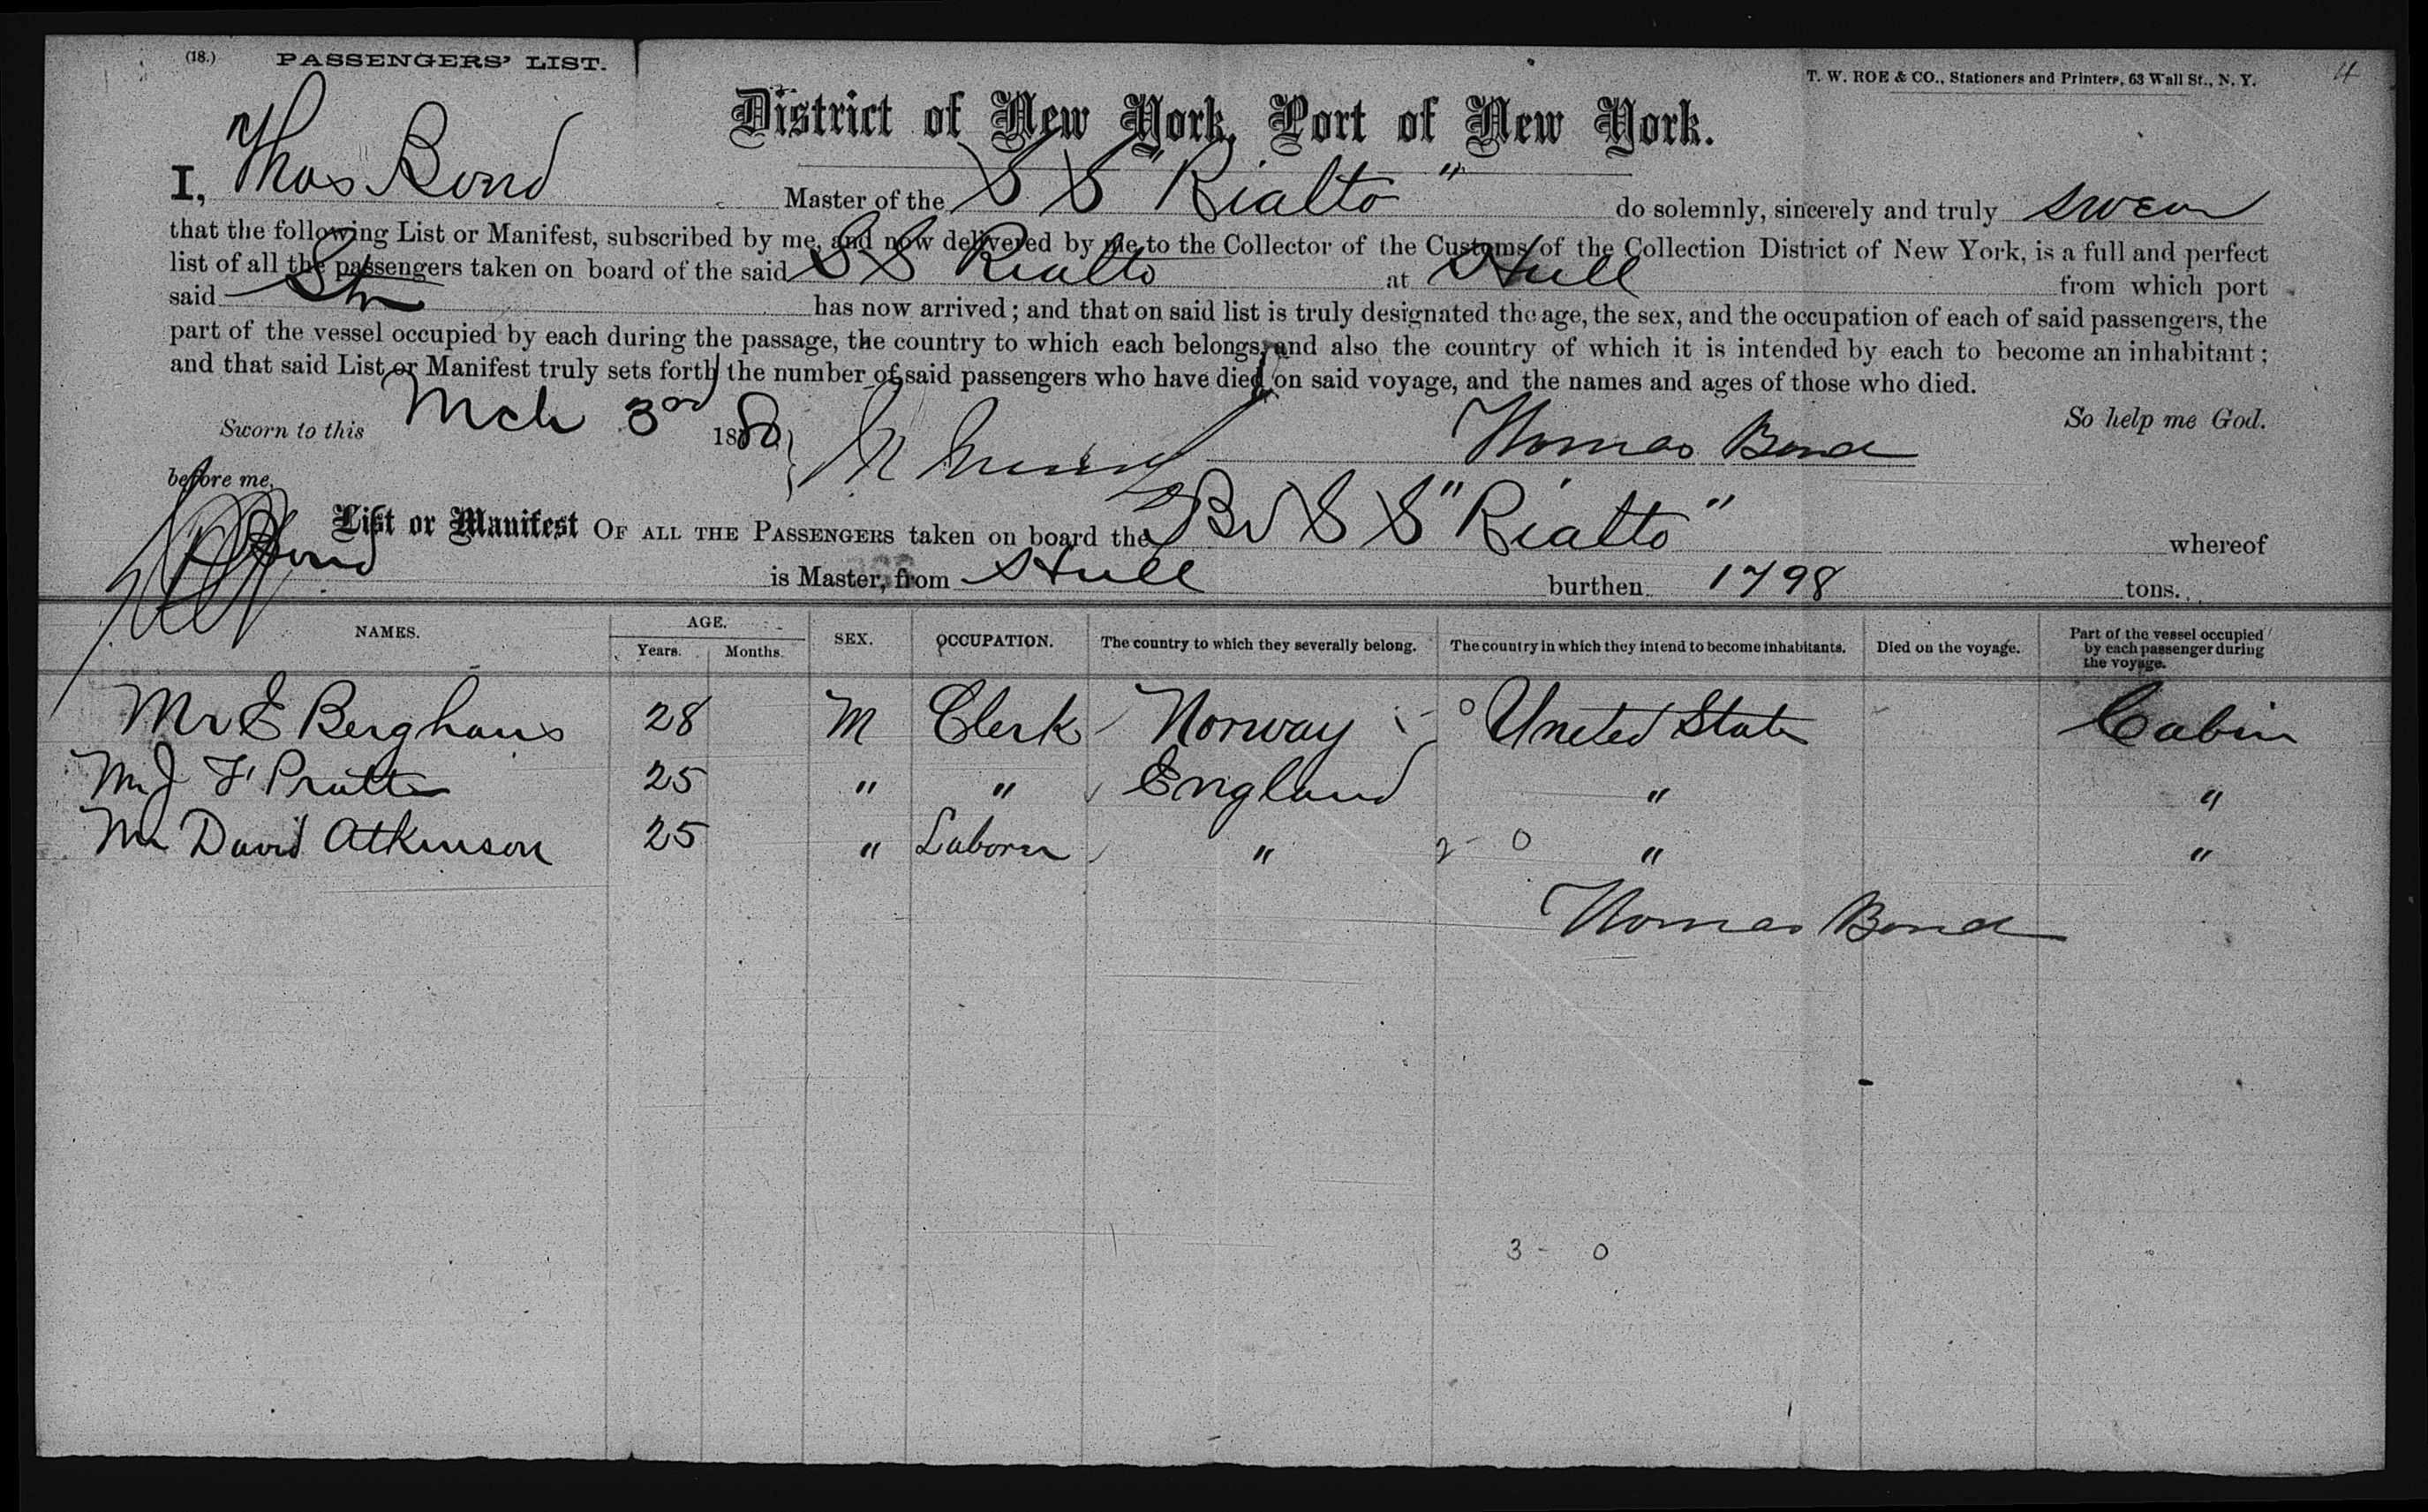 (18.) PASSENGERS' LIST.
T. W. ROE & CO., Stationers and Printers, 63 Wall St., N. Y. 4
District of New York, Port of New York.
I, Thos Bond Master of the S S "Rialto" do solemnly, sincerely and truly swear
that the following List or Manifest, subscribed by me, and now delivered by me to the Collector of the Customs of the Collection District of New York, is a full and perfect
list of all the passengers taken on board of the said S S Rialto at Hull from which port
said Str has now arrived; and that on said list is truly designated the age, the sex, and the occupation of each of said passengers, the
part of the vessel occupied by each during the passage, the country to which each belongs, and also the country of which it is intended by each to become an inhabitant;
and that said List or Manifest truly sets forth the number of said passengers who have died on said voyage, and the names and ages of those who died.
So help me God.
Sworn to this Mch 3rd 1880 Thomas Bond
before me,
List or Manifest OF ALL THE PASSENGERS taken on board the Br S S "Rialto" whereof
Bond is Master, from Hull burthen 1798 tons.
NAMES. AGE. Years. Months. SEX. OCCUPATION. The country to which they severally belong. The country in which they intend to become inhabitants. Died on the voyage. Part of the vessel occupied by each passenger during the voyage.
Mr E Berghaus 28 M Clerk Norway United State Cabin
Mr J F Pratt 25 " " England " "
Mr David Atkinson 25 " Laborer " 2 - 0 " "
Thomas Bond
3 - 0